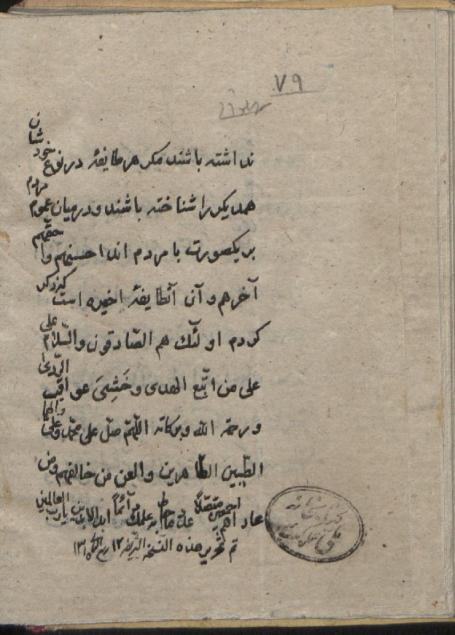 ۷۹
نداشته باشند مکر هر طایفهٔ در نوع خود شان
همدیکر را شناخته باشند و در میان عموم مردم
بر یکصورت با مردم اند احسنهم و احقهم
آخرهم و آن آنطایفهٔ اخیره است که ذکر
کردم اولئک هم الصّادقون والسّلام علی
علی من اتّبع الهدی و خَشِیَ عواقب الرّدی
و رحمة الله و برکاته اللّهمّ صلّ علی محمّد و علی و آلهما
الطّیبین الطّاهرین والعن من خالفهم و من
عاداهم اجمعین متصلاً دائماً ابد الآبدین یا ربّ العالمین
تم تحریر هذه النسخة الشریفه ۱۲